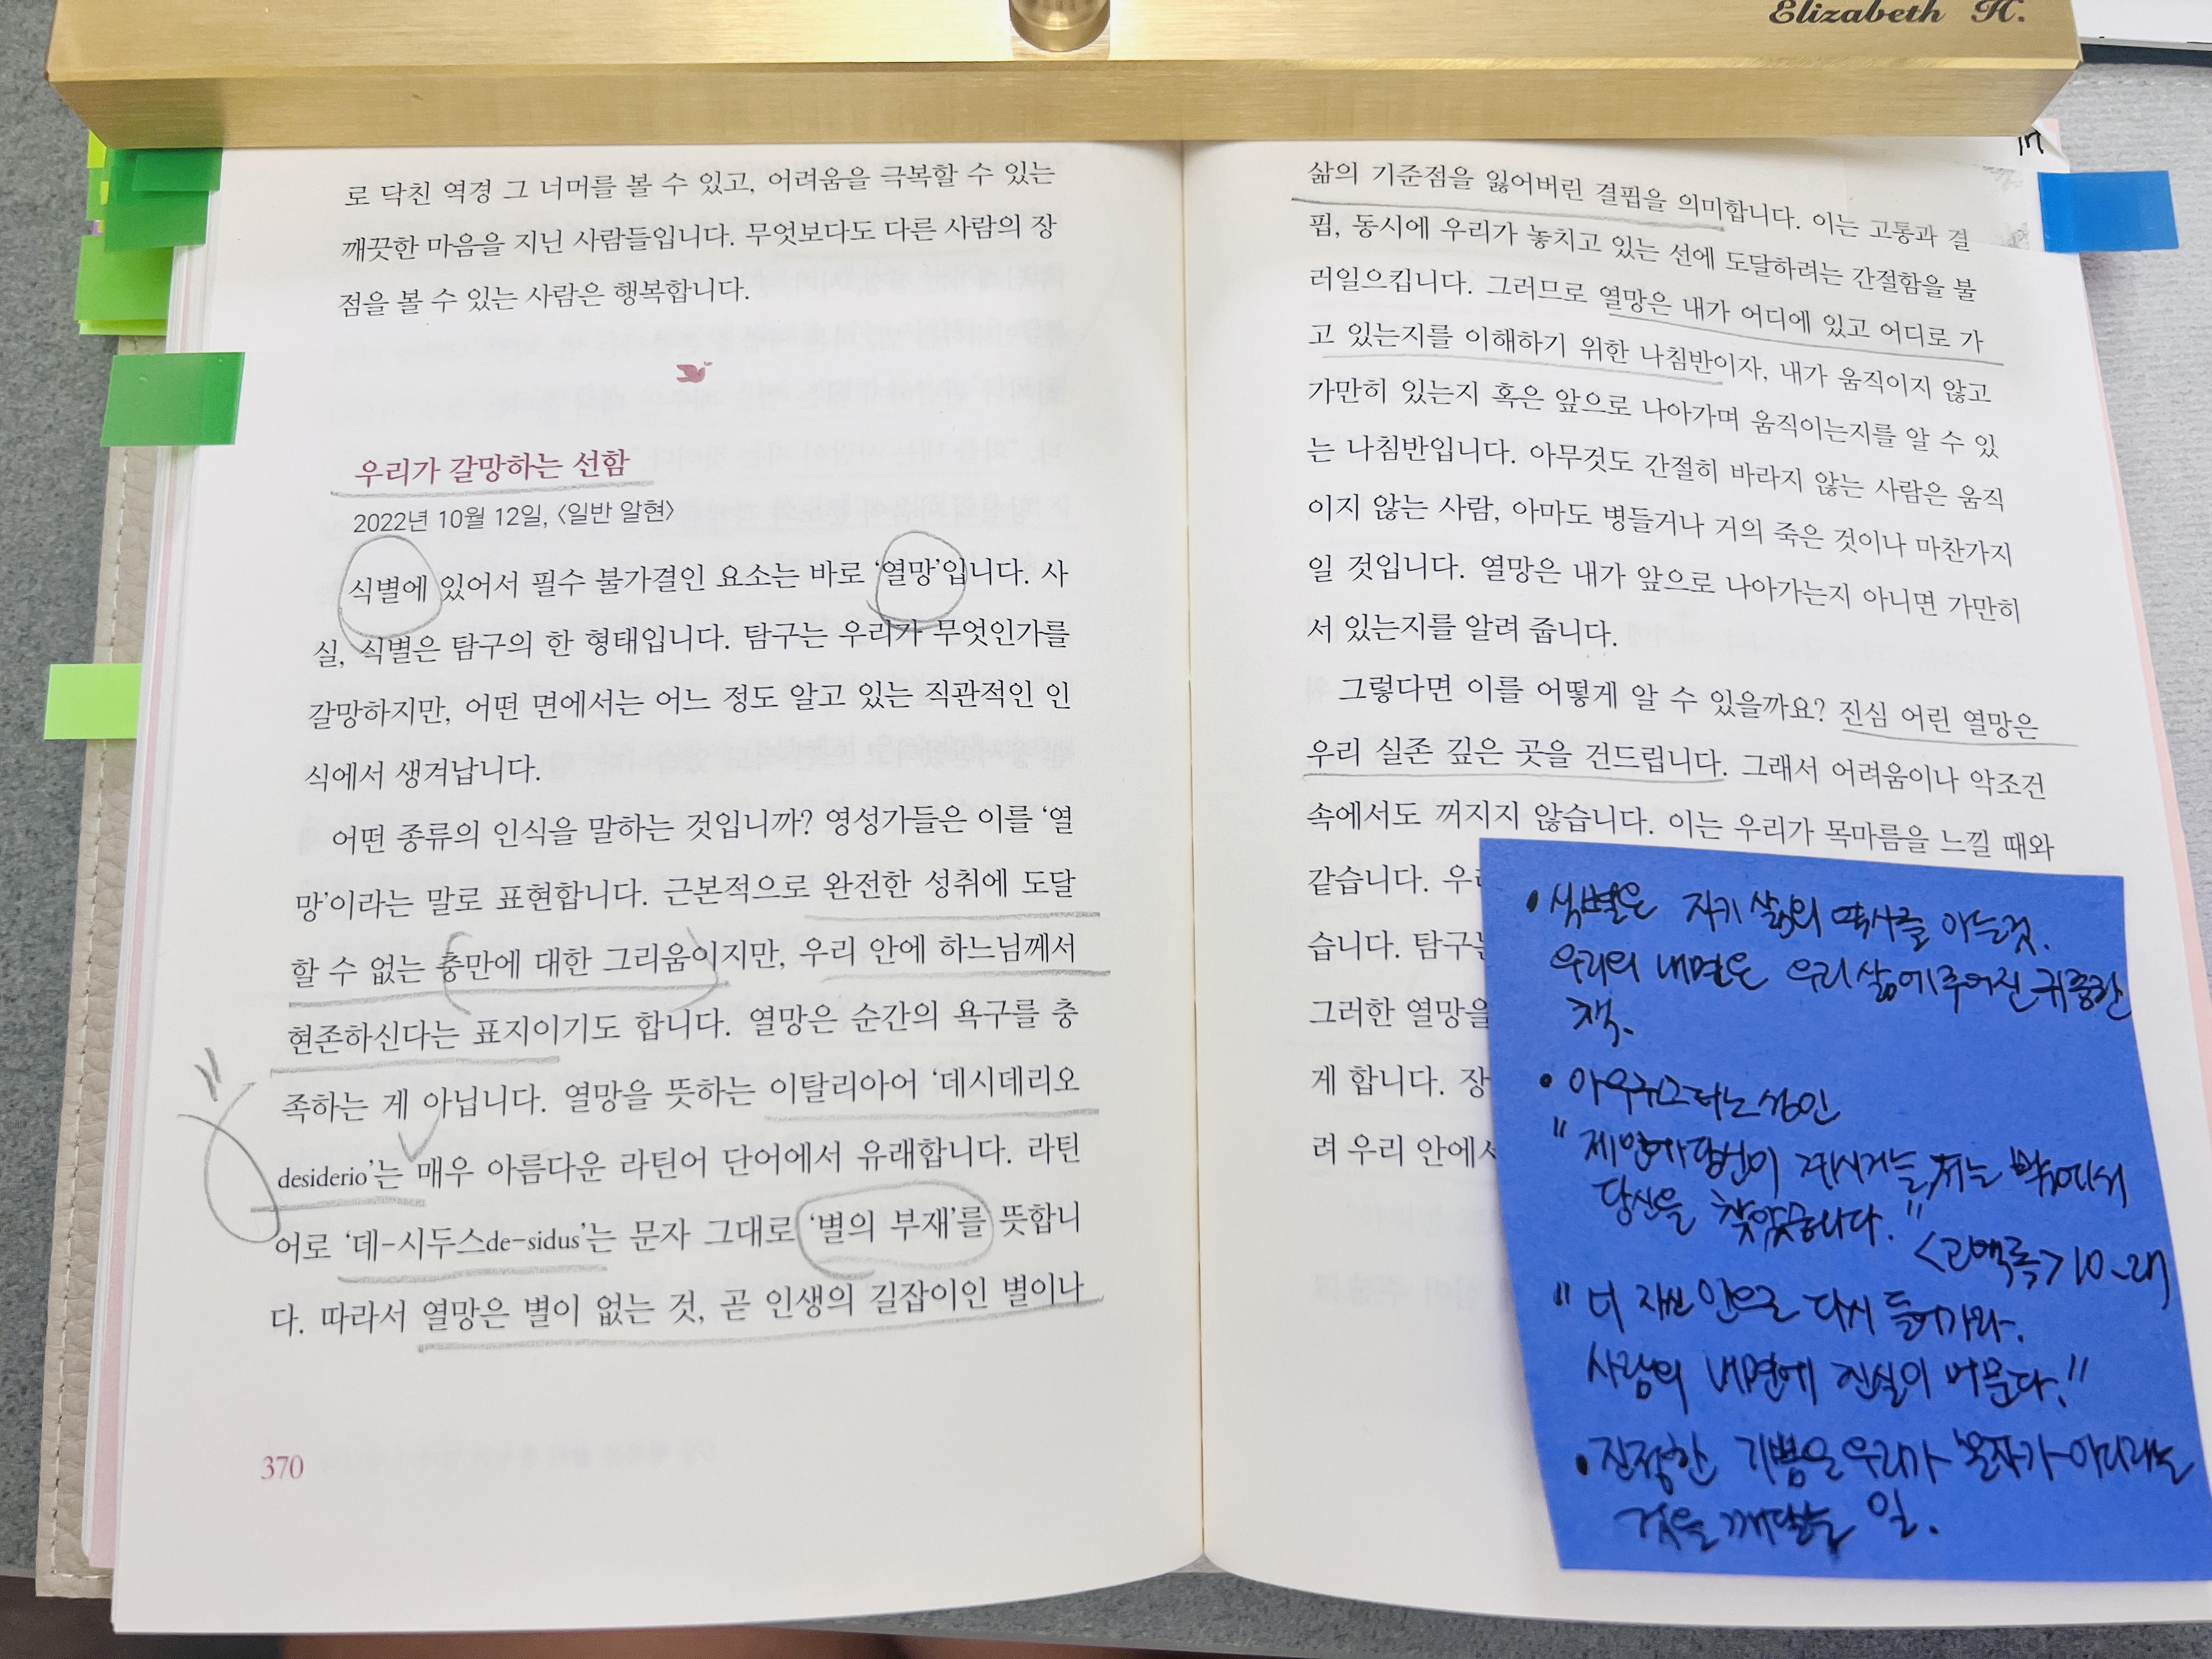 Elizabeth H.
로 닥친 역경 그 너머를 볼 수 있고, 어려움을 극복할 수 있는
깨끗한 마음을 지닌 사람들입니다. 무엇보다도 다른 사람의 장
점을 볼 수 있는 사람은 행복합니다.
우리가 갈망하는 선함
2022년 10월 12일, 〈일반 알현〉
식별에 있어서 필수 불가결인 요소는 바로 ‘열망’입니다. 사
실, 식별은 탐구의 한 형태입니다. 탐구는 우리가 무엇인가를
갈망하지만, 어떤 면에서는 어느 정도 알고 있는 직관적인 인
식에서 생겨납니다.
어떤 종류의 인식을 말하는 것입니까? 영성가들은 이를 ‘열
망’이라는 말로 표현합니다. 근본적으로 완전한 성취에 도달
할 수 없는 충만에 대한 그리움이지만, 우리 안에 하느님께서
현존하신다는 표지이기도 합니다. 열망은 순간의 욕구를 충
족하는 게 아닙니다. 열망을 뜻하는 이탈리아어 ‘데시데리오
desiderio’는 매우 아름다운 라틴어 단어에서 유래합니다. 라틴
어로 ‘데-시두스de-sidus’는 문자 그대로 ‘별의 부재’를 뜻합니
다. 따라서 열망은 별이 없는 것, 곧 인생의 길잡이인 별이나
370
삶의 기준점을 잃어버린 결핍을 의미합니다. 이는 고통과 결
핍, 동시에 우리가 놓치고 있는 선에 도달하려는 간절함을 불
러일으킵니다. 그러므로 열망은 내가 어디에 있고 어디로 가
고 있는지를 이해하기 위한 나침반이자, 내가 움직이지 않고
가만히 있는지 혹은 앞으로 나아가며 움직이는지를 알 수 있
는 나침반입니다. 아무것도 간절히 바라지 않는 사람은 움직
이지 않는 사람, 아마도 병들거나 거의 죽은 것이나 마찬가지
일 것입니다. 열망은 내가 앞으로 나아가는지 아니면 가만히
서 있는지를 알려 줍니다.
그렇다면 이를 어떻게 알 수 있을까요? 진심 어린 열망은
우리 실존 깊은 곳을 건드립니다. 그래서 어려움이나 악조건
속에서도 꺼지지 않습니다. 이는 우리가 목마름을 느낄 때와
같습니다. 우리
습니다. 탐구는
그러한 열망을
게 합니다. 장
려 우리 안에서
• 식별은 자기 삶의 역사를 아는것.
우리의 내면은 우리 삶에 주어진 귀중한
책.
• 아우구스티노 성인
" 제 안에 당신이 계시거늘, 저는 밖에서
당신을 찾았습니다."
<고백록> 10.
" 너 자신 안으로 다시 들어가라.
사람의 내면에 진실이 머문다."
• 진정한 기쁨은 우리가 혼자가 아니라는
것을 깨닫는 일.